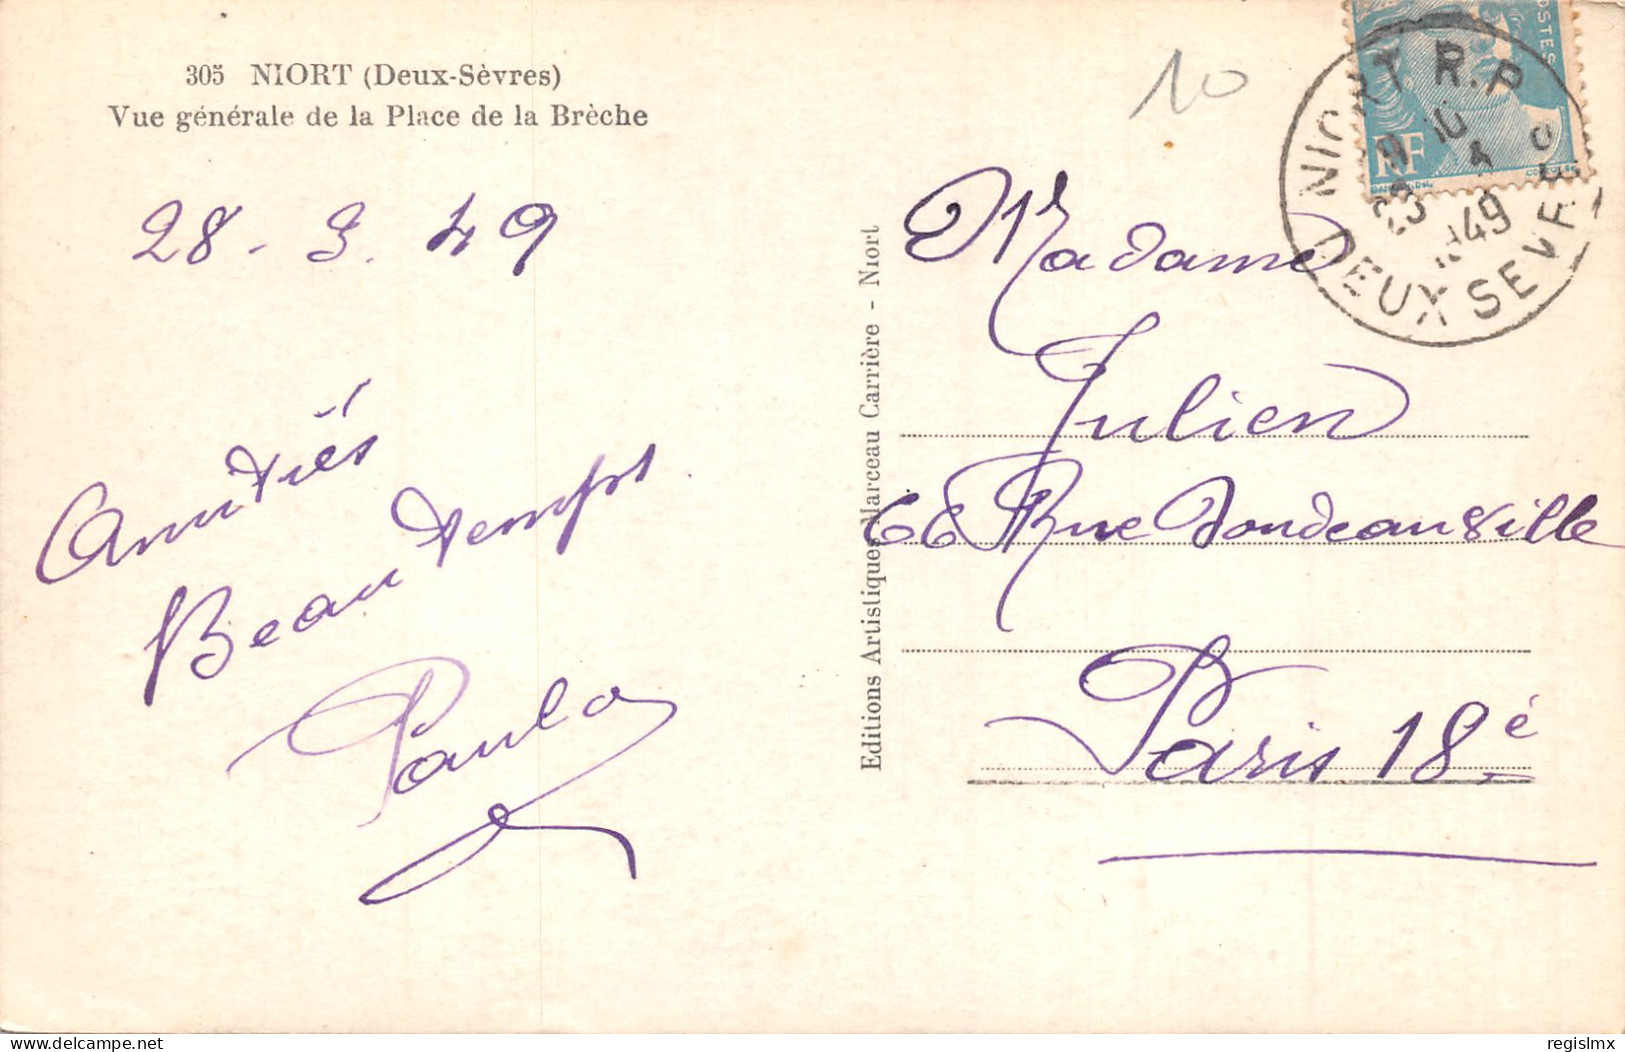 305 NIORT (Deux-Sèvres)
Vue générale de la Place de la Brèche
28 - 3. 49
Amitiés
Beau temps.
Paula
Editions Artistiques Marceau Carrière - Niort
10
POSTES
RF
NIORT R.P
DEUX SEVRES
1949
Madame
Julien
66 Rue Doudeauville
Paris 18è
www.delcampe.net
regislmx